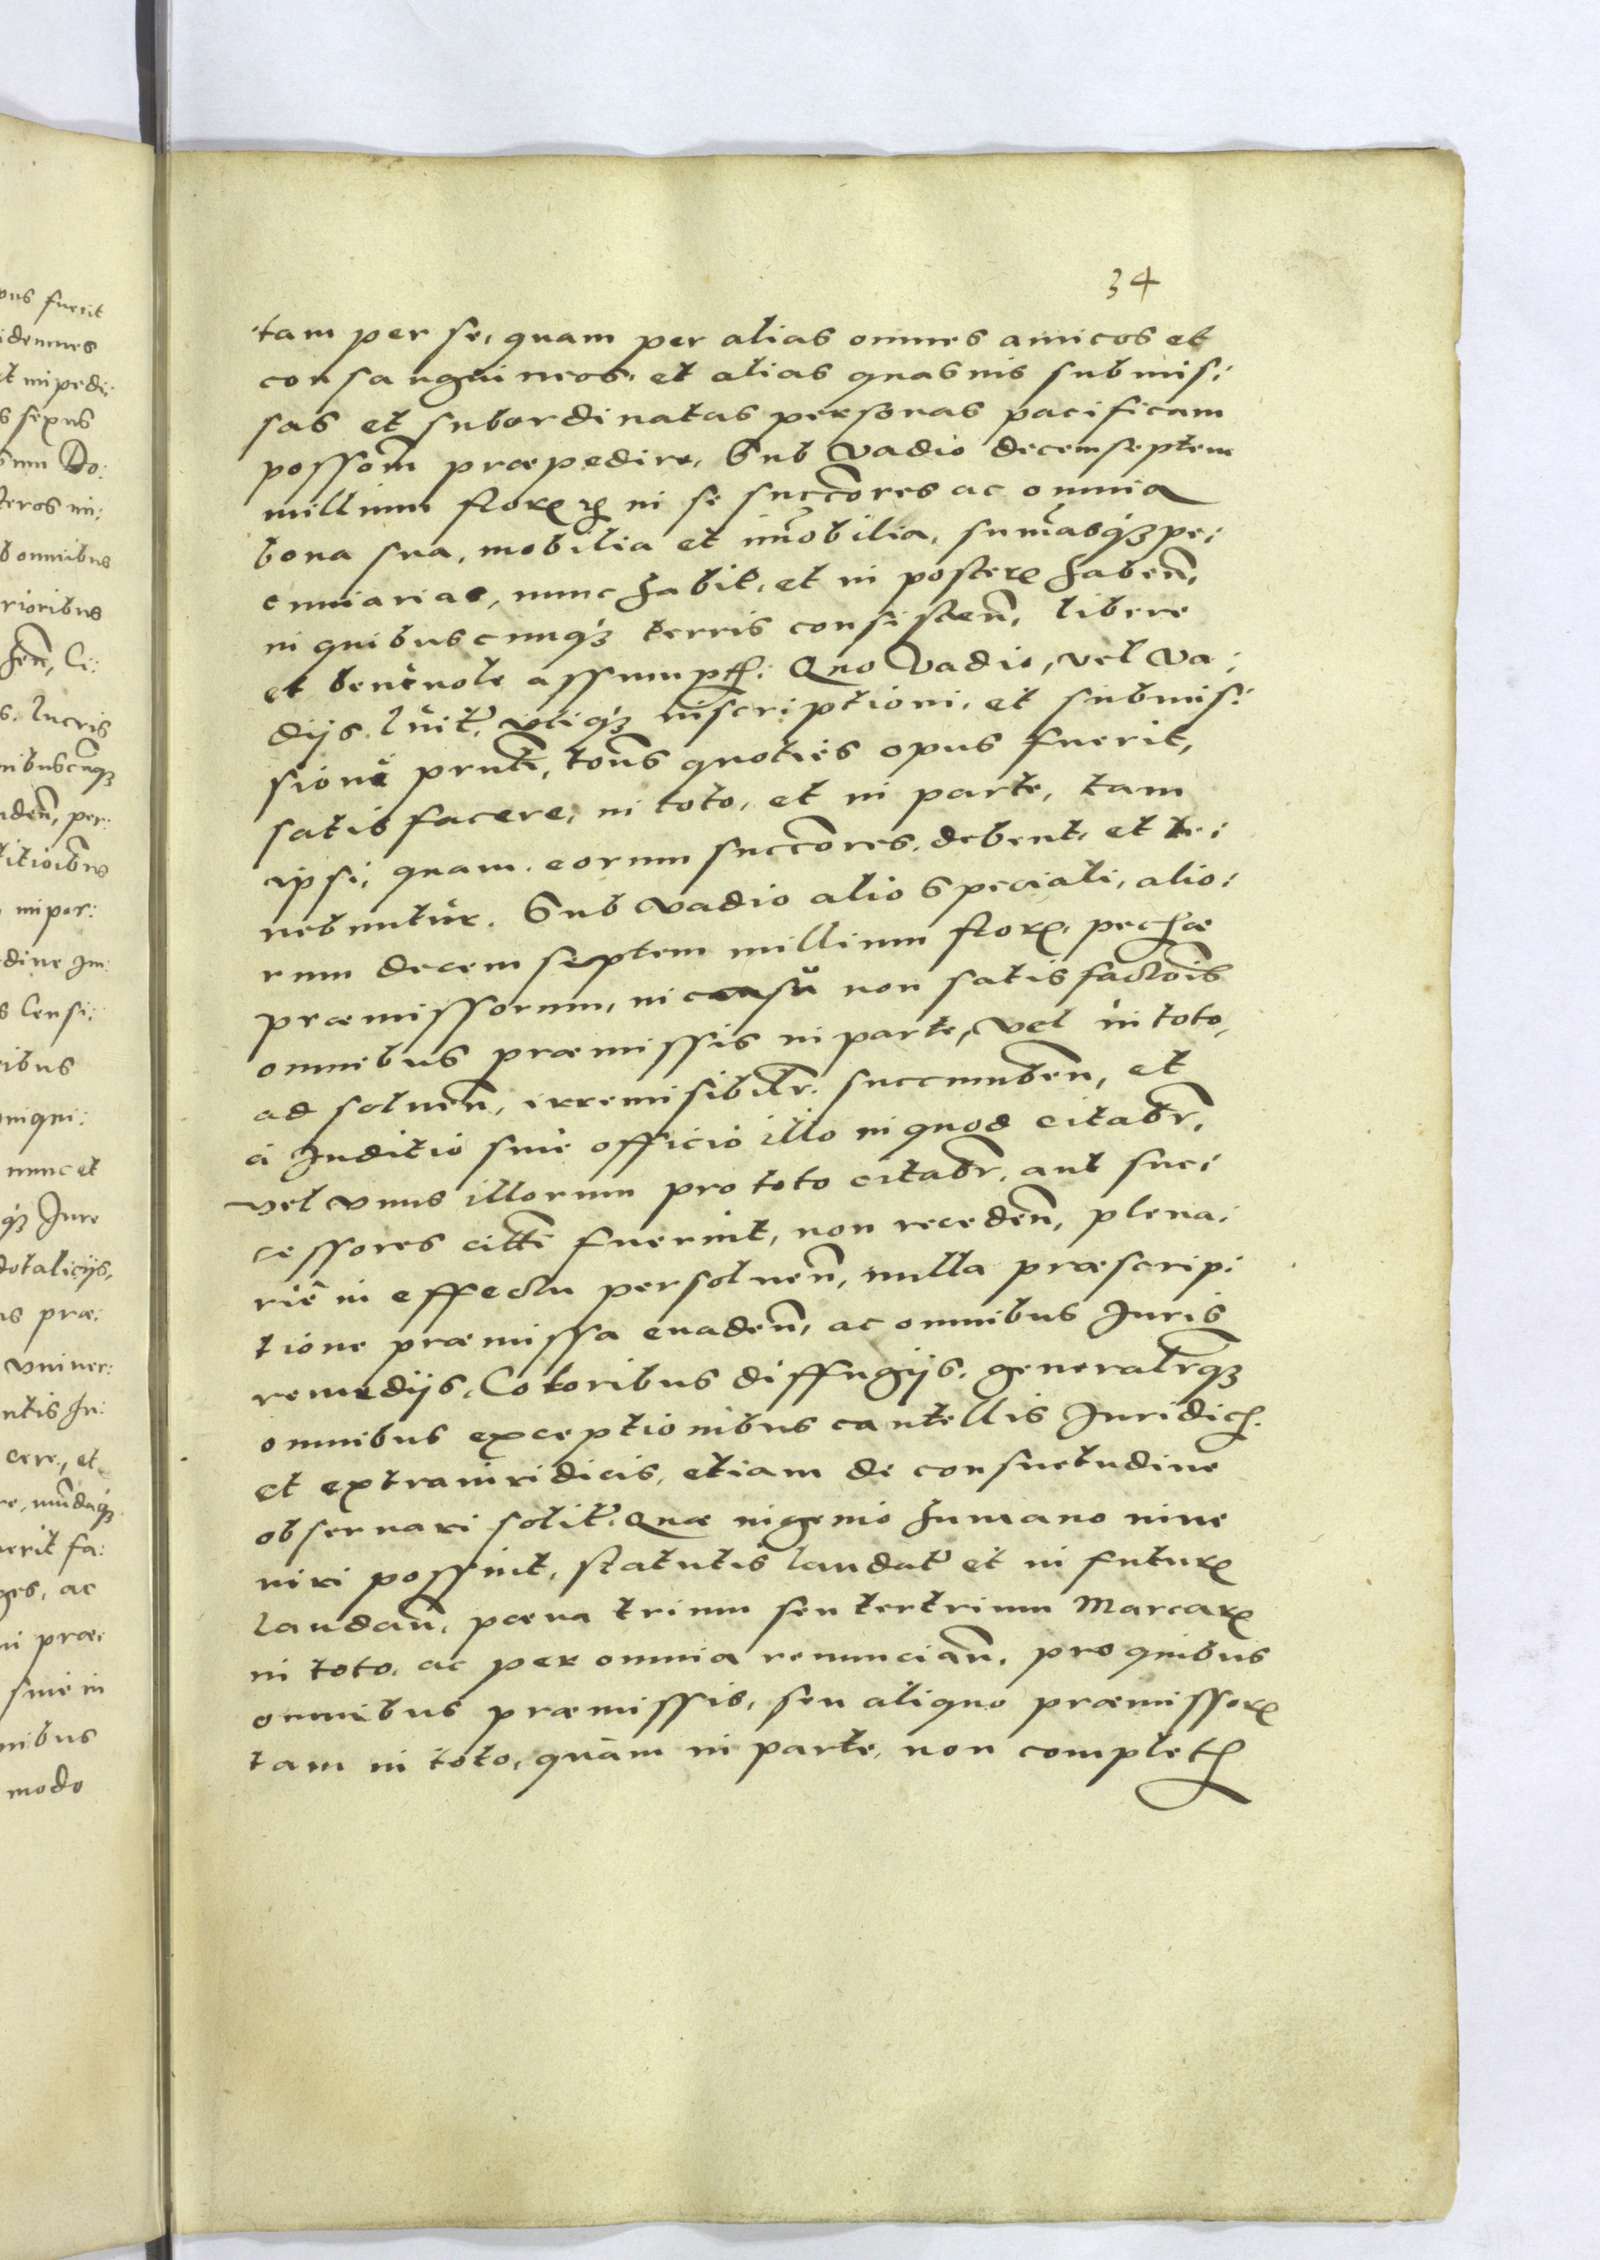 34
tam per se, quam per alias omnes amicos et
consanguineos, et alias quasuis submis:
sas et subordinatas personas pacificam
possom̃ præpedire, Sub vadio decemseptem
millium florꝝ in se succõres ac omnia
bona sua, mobilia et im̃obilia, sum̃asq3 pe:
cuniarias, nunc habit, et in posterꝝ haben̄,
in quibuscunq3 terris consisten̄, libere
et beneuole assumpt: Quo vadio, vel va:
dijs luit, vtiq3 inscriptioni, et submis:
sione prnti, toties quoties opus fuerit,
satisfacere, in toto, et in parte, tam
ipsi, quam eorum succõres, debent, et te:
nebuntur. Sub vadio alio speciali, alio:
rum decem septem millium florꝝ, pechæ
præmissorum, in casu non satisfactõis
omnibus præmissis in parte, vel in toto,
ad soluen̄, irremisibilr̃ succumben̄, et
a Juditio siue officio illo in quod citabr̃,
vel vnus illorum pro toto citabr̃, aut suc:
cessores citti fuerint, non receden̄, plena:
rie in effectu persoluen̄, nulla præscrip:
tione præmissa euaden̄, ac omnibus Juris
remedijs, Coloribus diffugijs, generalr̃q3
omnibus exceptionibus cautellis Juridich
et extrajuridicis, etiam de consuetudine
obseruari solit, Quæ ingenio humano inue
niri possint, statutis laudat et in futurꝝ
laudan̄, pæna trium seu tertrium Marcarꝝ
in toto, ac per omnia renuncian̄, pro quibus
omnibus præmissis, seu aliquo præmissorꝝ
tam in toto, quam in parte, non complet
ous fuerit
idemnes
t impedi:
s sexus
Do:
teros in:
b omnibus
rioribus
s, lucris
nibuscunq3
den̄, per:
titioibus
imper:
dine Im:
s Censi:
ibus
nunc et
q3 Jure
dotalicijs,
us præ:
vniuer:
ntis Ju:
cere, et
re, mundaq3
erit fa:
ges, ac
ni præ:
siue in
nibus
modo